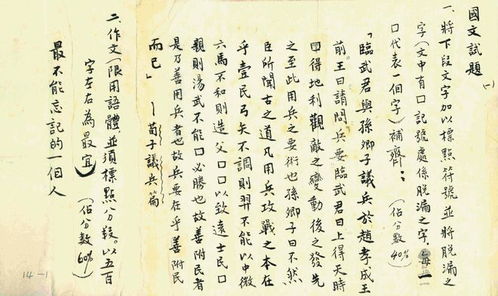 國文試題(一)
一、將下段文字加以標點符號並將脫漏之
字(文中有口記號處係脫漏之字,每一
口代表一個字)補齊:(佔分數40%)
「臨武君與孫卿子議兵於趙孝成王
前王曰請問兵要臨武君曰上得天時
口得地利觀敵之變動後之發先
之至此用兵之要術也孫卿子曰不然
臣所聞古之道凡用兵攻戰之本在
乎壹民弓矢不調則羿不能以中微
六馬不和則造父口口以致遠士民口
親則湯武不能口必勝也故善附民者
是乃善用兵者也故兵要在乎善附民
而已」—荀子議兵篇
二、作文(限用語體並須標點、分段。以五百
字左右為最宜)(佔分數60%)
最不能忘記的一個人
14-1